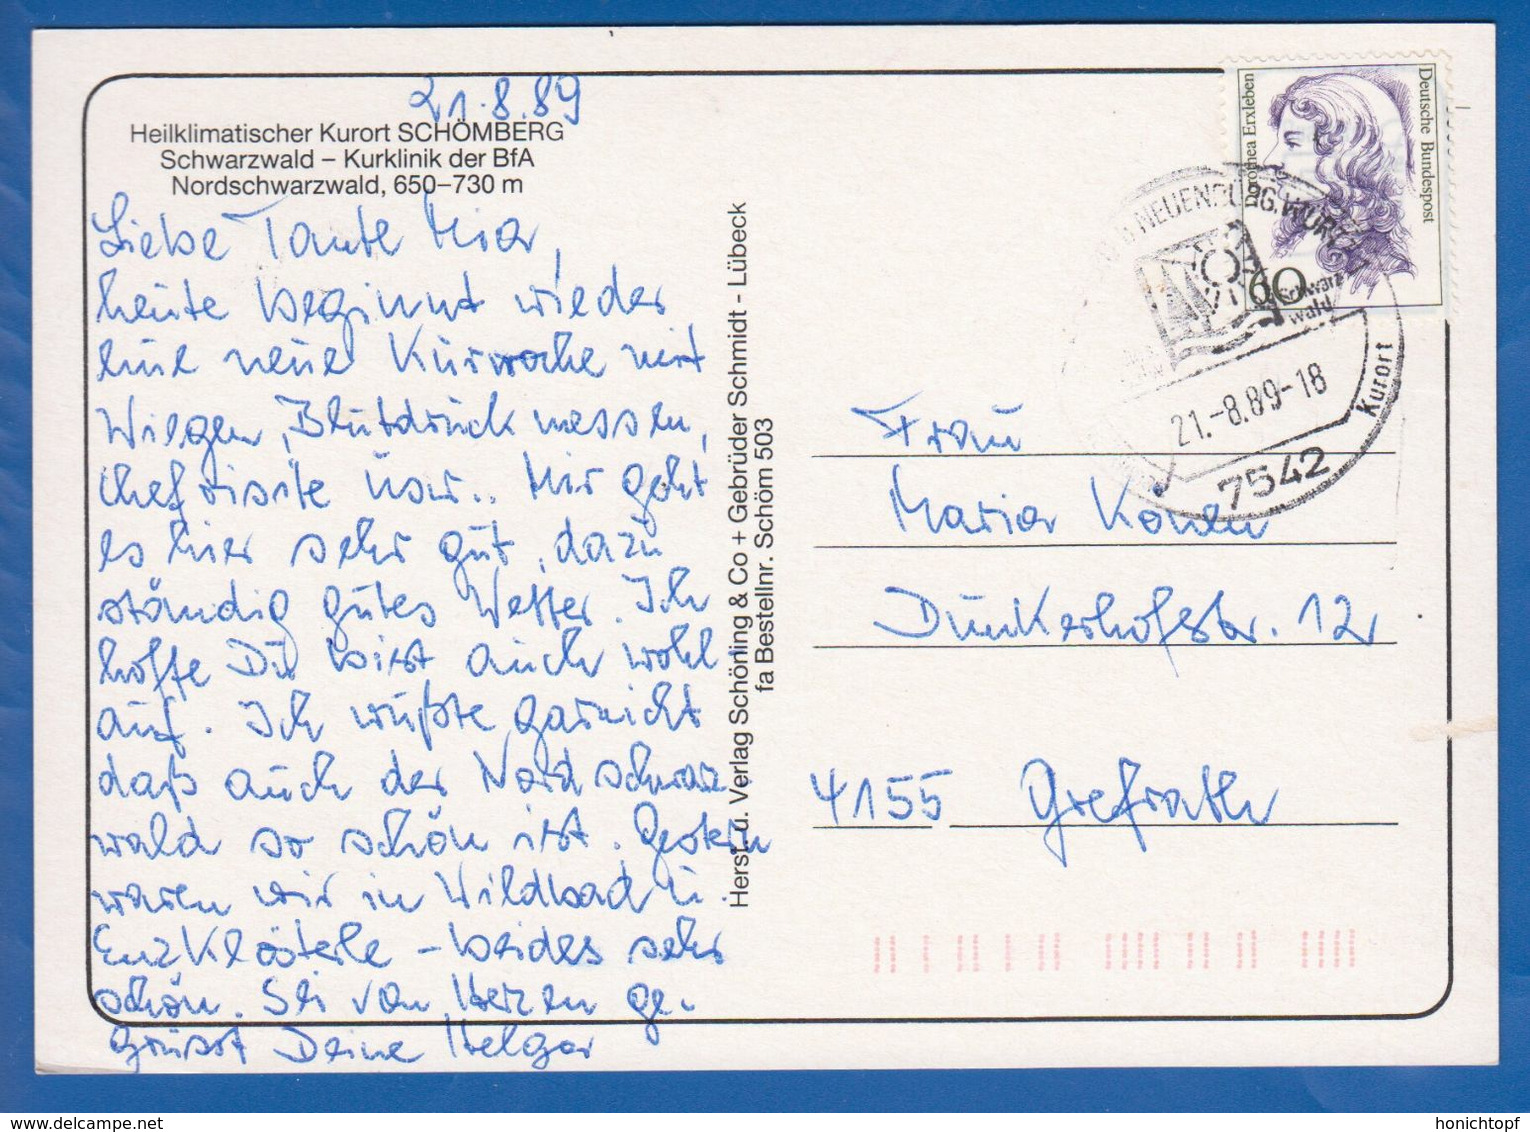 21.8.89
Heilklimatischer Kurort SCHÖMBERG
Schwarzwald – Kurklinik der BfA
Nordschwarzwald, 650–730 m
Liebe Tante Mia,
heute beginnt wieder
eine neue Kurwoche mit
Wiegen, Blutdruck messen,
Chefvisite usw.. Mir geht
es hier sehr gut, dazu
ständig gutes Wetter. Ich
hoffe Du bist auch wohl
auf. Ich wußte garnicht
daß auch der Nordschwarz-
wald so schön ist. Gestern
waren wir in Wildbad u.
Enzklösterle – beides sehr
schön. Sei von Herzen ge-
grüsst Deine Helga
Herst. u. Verlag Schöning & Co + Gebrüder Schmidt - Lübeck
fa Bestellnr. Schöm 503
Dorothea Erxleben
Deutsche Bundespost
60
NEUENBÜRG, WÜRTT
Schwarz
wald
21.-8.89-18
7542
Kurort
Frau
Maria
Dunkerhofstr. 12
4155 Grefrath
honichtopf